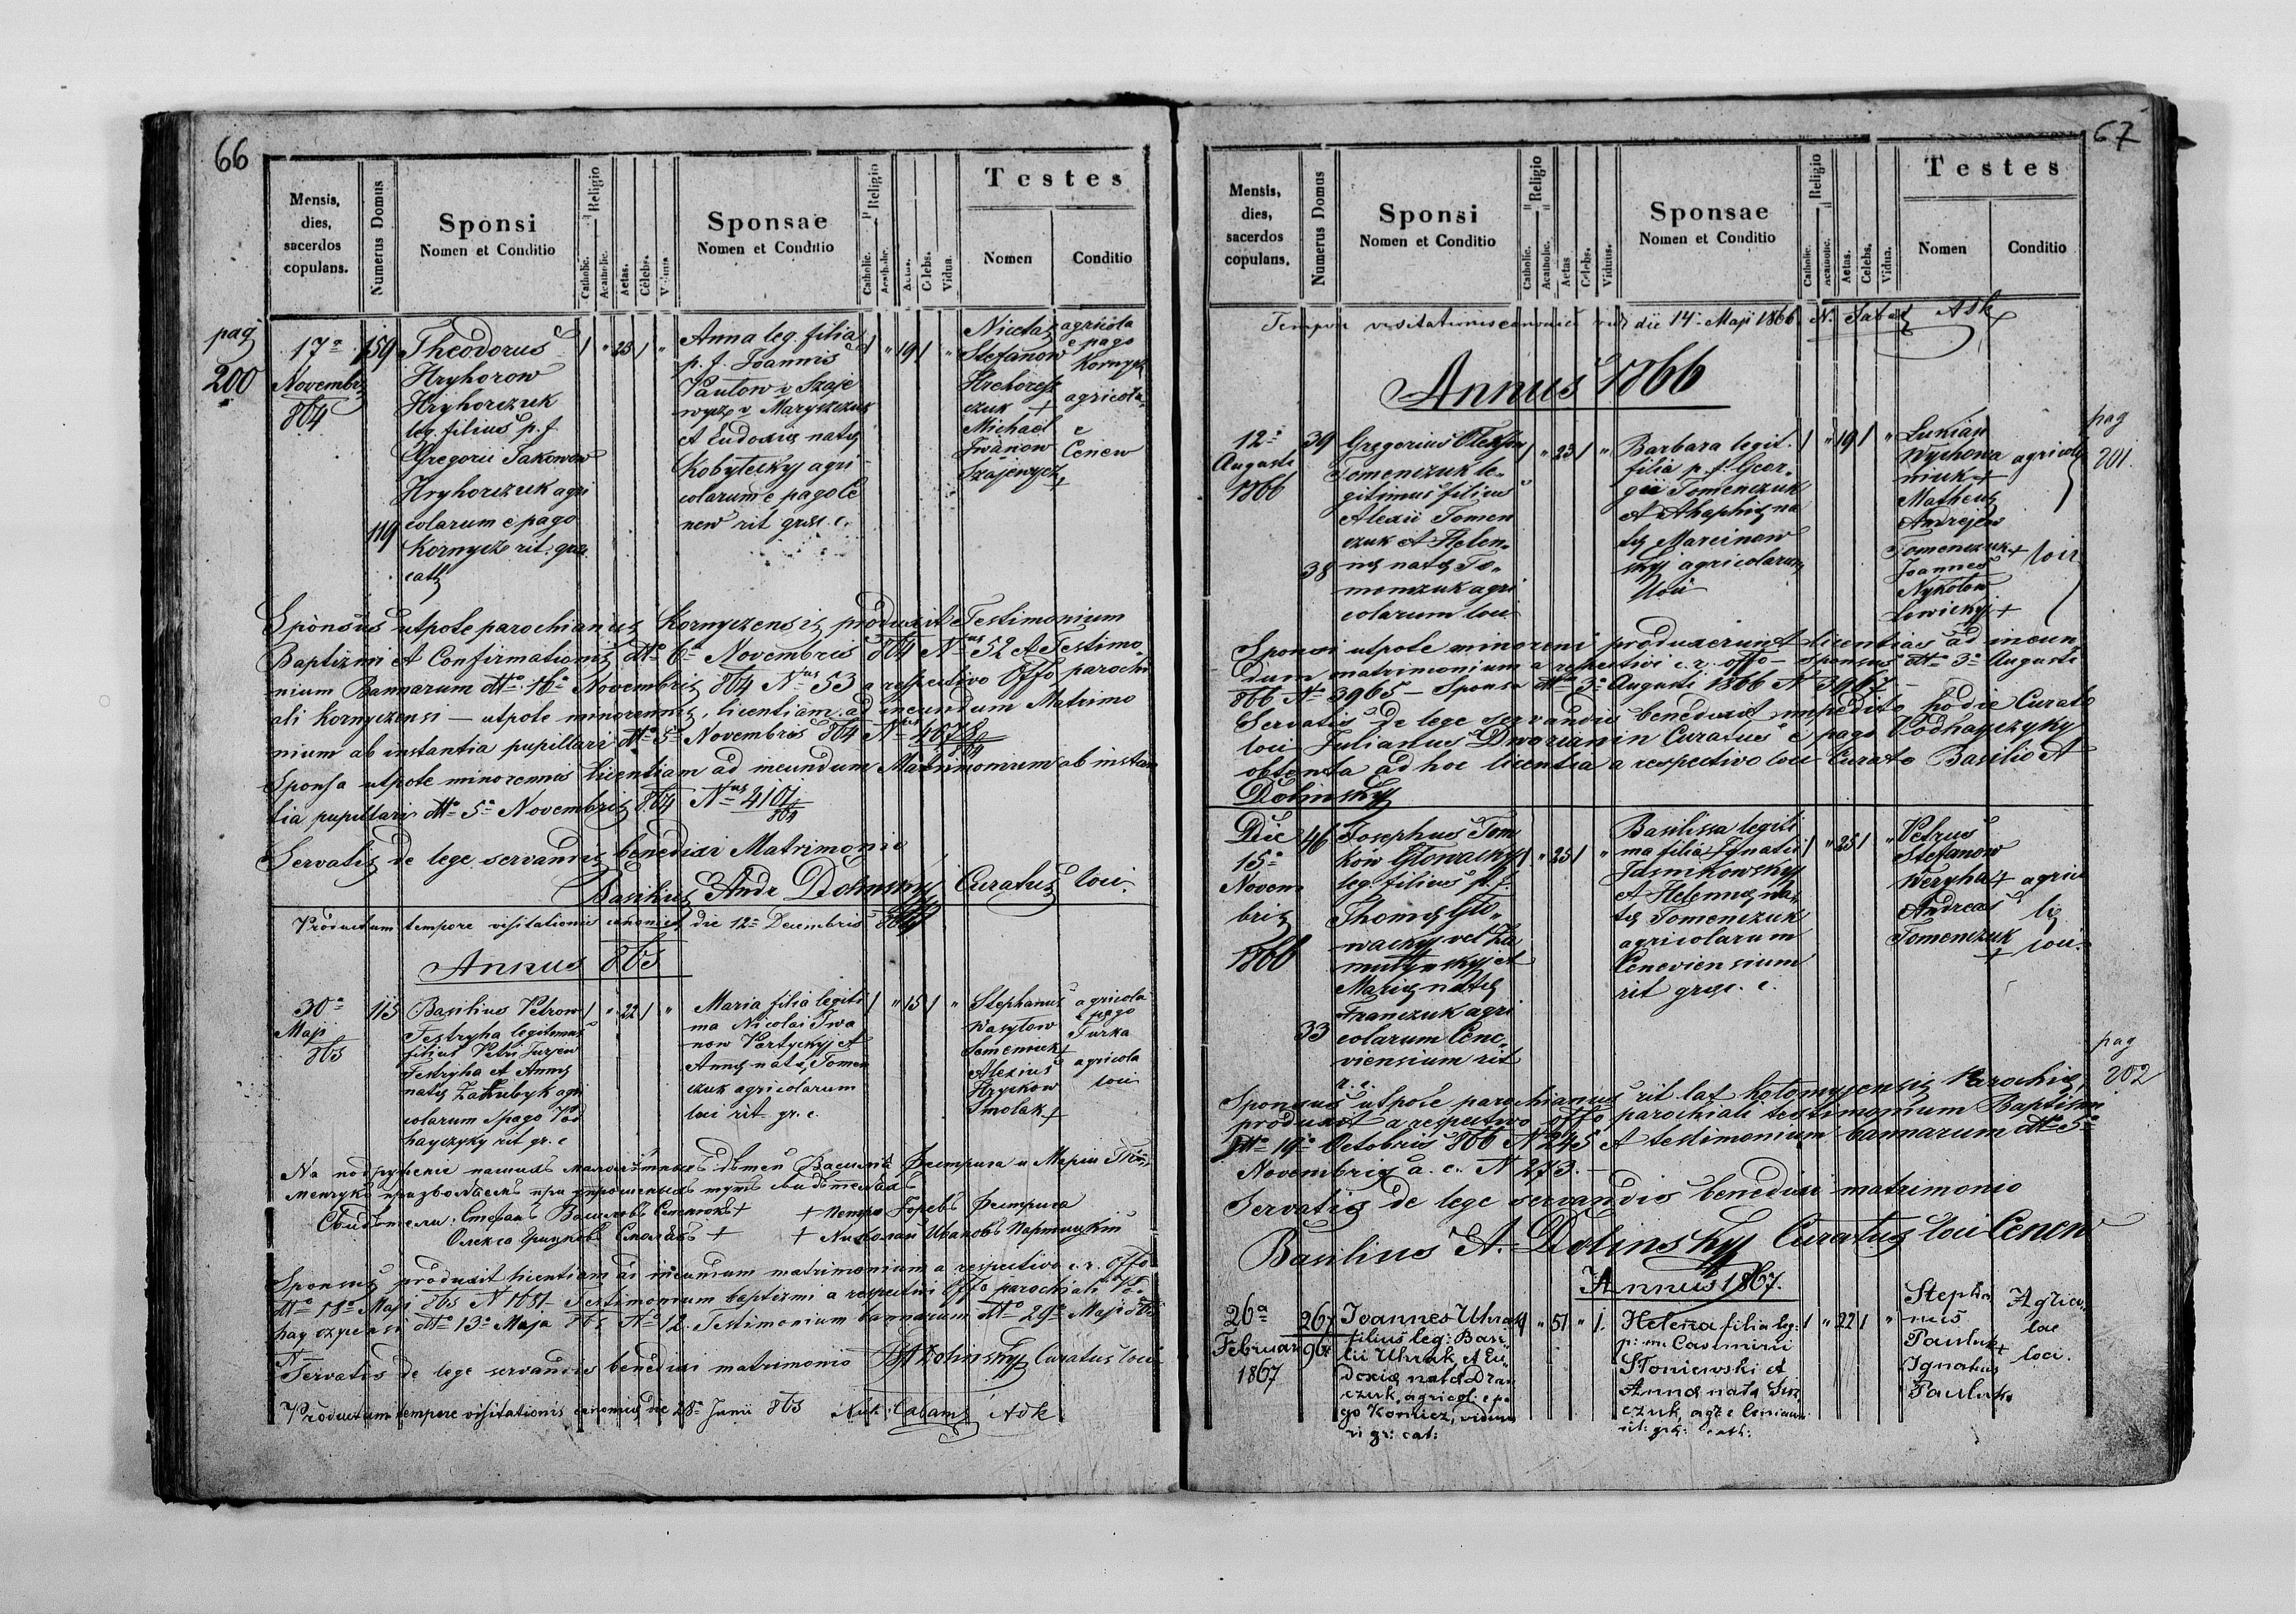 66
Mensis, dies, sacerdos copulans.
Numerus Domus
Sponsi
Nomen et Conditio
Religio
Catholic.
Acatholic.
Aetas.
Celebs.
Sponsae
Nomen et Conditio
Religio
Catholic.
Celebs.
Vidua.
Testes
Nomen
Conditio
pag
200
17a
Novembris
864
159
119
Theodorus
Hryhorow
Hryhorczuk
leg. filius p. f.
Gregorii Jakowow
Hryhorczuk agri
colarum e pago
Kornycz rit. graec
cath
1 " 23 1 "
Anna leg. filia
p. f. Joannis
wycz v Maryszczuk
et Eudoxiae natae
Kobyłecky agri
colarum e pago Ce
new rit. graec. c.
1 " 19 1 "
Nicolaus
Stefanow
czuk +
Michael
Iwanow
Szajewycz
+
agricola
e pago
Kornycz
agricola
e
Cenew
Sponsus utpote parochianus Kornyczensis produxit Testimonium
Baptizmi et Confirmationis dto 6a Novembris 864 Nus 52 et Testimo
nium Bannarum dto 16a Novembris 864 Nus 53 a respectivo Offo parochi
ali Kornyczensi — utpote minorennis, licentiam ad ineundum Matrimo
nium ab instantia pupillari dto 5a Novembris 864 Nus 4078/864
Sponsa utpote minorennis licentiam ad ineundum Matrimonium ab instan
tia pupillari dto 5a Novembris 864 Nus 4107/864
Servatis de lege servandis benedixi Matrimonio
Basilius Andr Dolinskyj Curatus loci.
Productum tempore visitationis canonicae die 12a Decembris 864
Annus 865
30a
Maji
865
113
Basilius Petrow
Festryha legitimus
filius Petri Jurjew
Festryha et Annae
natae Zahubyk agri
colarum e pago Pod
hayczyky rit gr. c
1 " 22 1 "
Maria filia legiti
ma Nicolai Iwa
now Partyckyj et
Annae natae Tomen
czuk agricolarum
loci rit gr. c.
1 " 15 1 "
Stephanus
Wasylow
Semeniuk +
Alexius
Hryckow
Smolak +
agricola
e pago
Turka
agricola
loci
Сьвидѣтели: Стефанъ Василевъ Семенюкъ + + Петро Юревъ Фештрига
Олекса Грицковъ Смолякъ + + Николай Ивановъ Партицкій
Sponsus produxit licentiam ad ineundum matrimonium a respectivo c. r. Offo
dto 18a Maji 865 N 1651 — Testimonium baptizmi a respectivi Offo parochiali Pod
hayczycensi dto 13a Maja 865 No 12. Testimonium bannarum dto 29a Maji 865
N
Servatis de lege servandis benedixi matrimonio BADolinskyj Curatus loci
Productum tempore visitationis canonicae die 28a Junii 865
67
Mensis, dies, sacerdos copulans.
Numerus Domus
Sponsi
Nomen et Conditio
Religio
Catholic.
Acatholic.
Aetas
Celebs.
Viduus.
Sponsae
Nomen et Conditio
Religio
Catholic.
Acatholic.
Aetas.
Celebs.
Vidua.
Testes
Nomen
Conditio
Tempore visitationis canonicae die 14a Maji 1866
Annus 1866
pag
201.
12a
Augusti
1866
39
38
Gregorius Olexow
Tomenczuk le-
gitimus filius
Alexii Tomen
czuk et Helen-
ae natae To-
menczuk agri
colarum loci
1 " 23 1 "
Barbara legit.
filia p. f. Geor-
gii Tomenczuk
et Ahaphiae na
tae Marcinow
skyj agricolarum
loci
1 " 19 1 "
Lukian
Wychowa
niuk +
Matheus
Andrejew
Tomenczuk +
Joannes
Nykolow
Lewickyj +
agricolae
loci
Sponsi utpote minorenni produxerunt licentias ad ineun
dum matrimonium a respectivi c. r. offo — sponsus dto 3a Augusti
866 No 3965 — Sponsa dto 3a Augusti 1866 N 3967 —
Servatis de lege servandis benedixit impedito hodie Curato
loci Julianus Dworianin Curatus e pago Podhayczyky
obtenta ad hoc licentia a respectivo loci Curato Basilio A
Dolinskyj
Die
15a
Novem
bris
1866
46
33
Josephus Tom
kow Głowackyj
leg. filius p. f.
Thomae Gło-
wackyj vel Za
mułynskyj et
Mariae natae
Franczuk agri
colarum Cene-
viensium rit
r. c.
1 " 25 1 "
Basilissa legiti
ma filia Ignatii
Jasinkowskyj
et Helennae na-
tae Tomenczuk
agricolarum
Ceneviensium
rit graec. c.
1 " 25 1 "
Petrus
Stefanow
Weryha +
Andreas
Tomenczuk
+
agrico
lae
loci.
pag
202
Sponsus utpote parochianus rit. lat. Kołomyjensis Parochiae,
produxit a respectivo offo parochiali testimonium Baptizmi
dto 19a Octobris 866 N 245 et testimonium bannarum dto 5a
Novembris a. c. N 273. —
Servatis de lege servandis benedixi matrimonio
Basilius A. Dolinskyj Curatus loci Cenew
Annus 1867.
26a
Februar
1867
267
96
Joannes Uhrak
filius leg: Basi
lii Uhrak, et Eu
doxiae nata Dran
czuk, agricol: e pa
go Kornicz, viduus
ri gr: cat:
1 " 51 " 1.
Helena filia leg:
p: m: Casimiri
Słoniewski et
Anna nata Sen
czuk, agr. e Ceniawa
rit: grk: cath:
1 " 22 1 "
Stepha
nus
Pauluk +
Ignatius
Pauluk +
Agrico-
lae
loci.